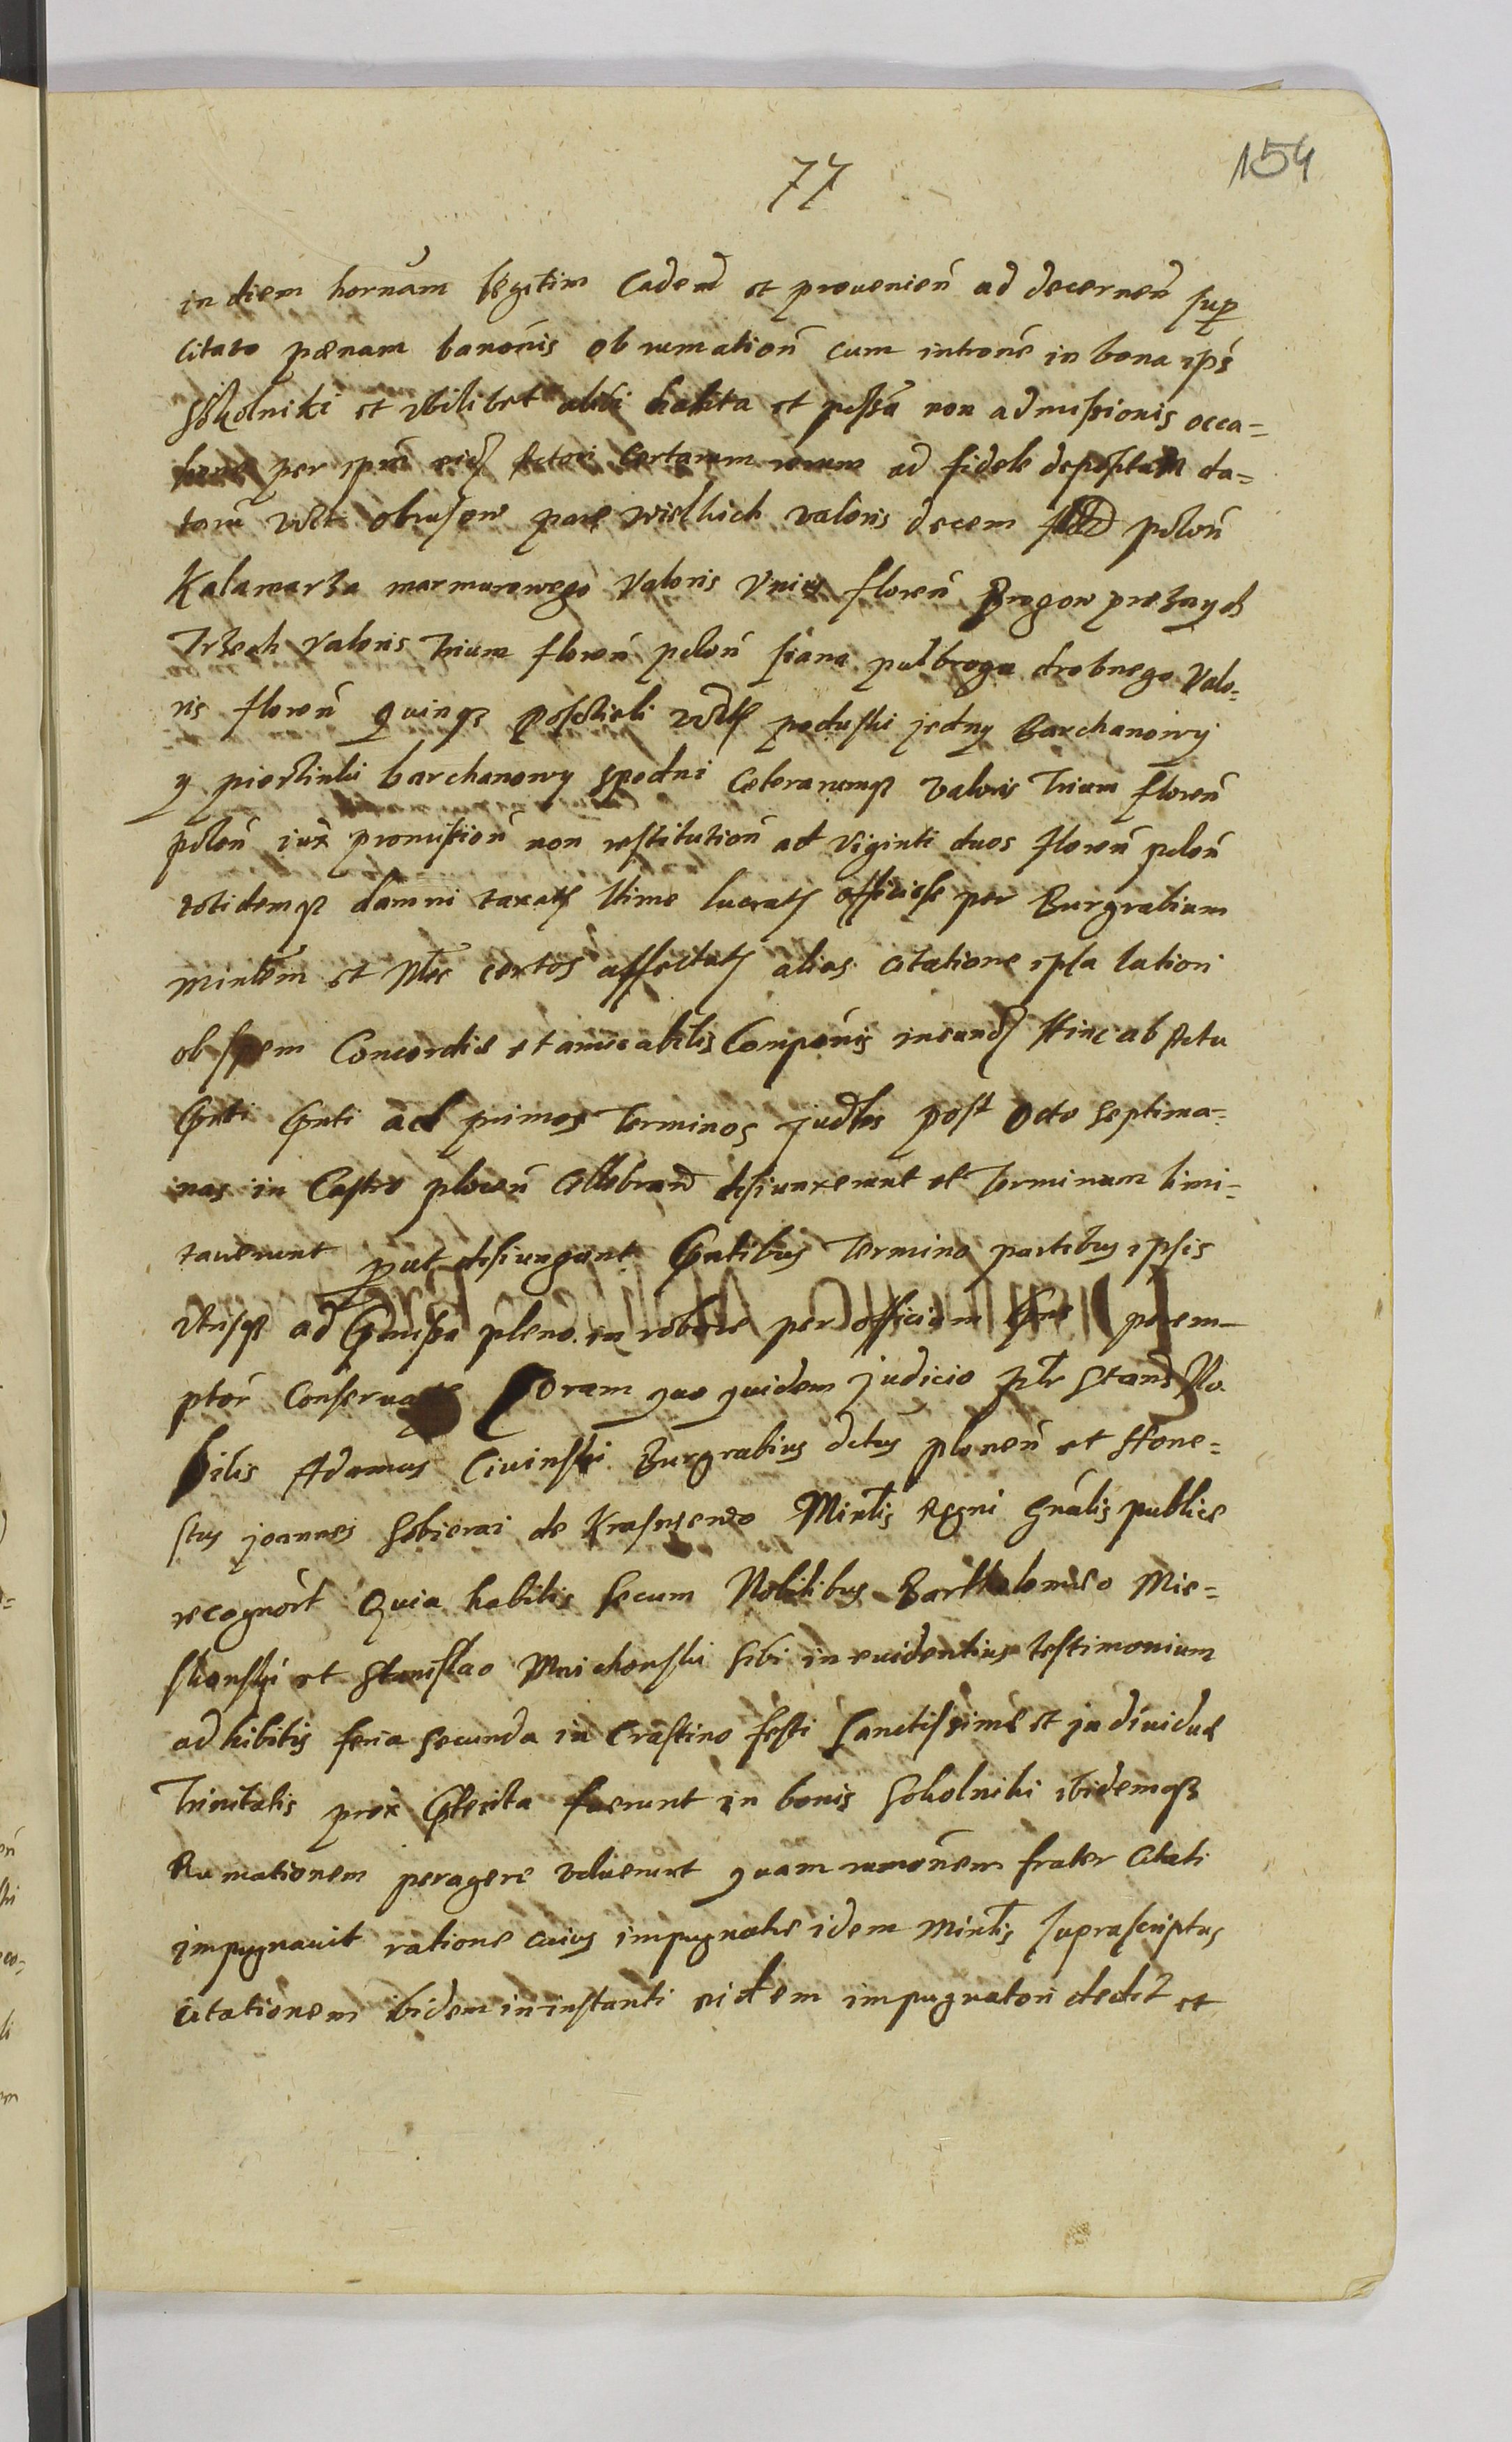 77
154
in diem hornam legitim Cadend et prouenien ad decernen sup
citato pœnam banonis ob rumation cum introne in bona ips
Sokolniki et vbilibet alibi habita et possa non admissionis occa=
sione per ipm eid Actori Certarum rerum ad fidele depositum da=
tarum vdlt obrusow pare wielkich valoris decem polon
Kalamarza marmurowego Valoris Vnius floren Progow
Trzech valoris trium floren polon siana pulbroga drobnego Valo=
ris floren quinqz poscieli vdlt poduski jedny Barchanowy
y pierzinki barchanowy spodni Ceterarumqz valoris Trium floren
polon iux promission non restitution ad viginti duos floren polon
totidemqz damni taxat ltime lucrat officiose per Burgrabium
minlem et Nles certos affectat alias citatione ipsa lationi
ob spem Concordiæ et amicabilis Componis ineund Hinc ab Actu
Pnti Pnti ad primos Terminos judles post Octo septima=
nas in Castro plocen Celebrand disiunxerunt et Terminum limi=
tauerunt put disiungunt Pntibus Termino partibus ipsis
vtrisqz ad Pmissa pleno in robore per officium Pns perem=
ptor Conseruato Coram quo quidem judicio plr Stand No
bilis Adamus Ciuinski Burgrabius dctus plonen et Hone=
stus joannes Sobierai de Krasniewo Minlis Regni Gnalis publice
recognort Quia habitis secum Nobilibus Bartholomeo Mie=
skonski et Stanislao Mnichowski sibi in euidentius testimonium
adhibitis feria secunda in Crastino festi Sanctissimæ et indiuiduæ
Trinitatis prox Pterita fuerunt in bonis Sokolniki ibidemqz
Rumationem peragere voluerunt quam rumonem frater Citati
impugnauit ratione cuius impugnatæ idem Minlis supra scriptus
citationem ibidem in instanti eidem impugnatori dedit et